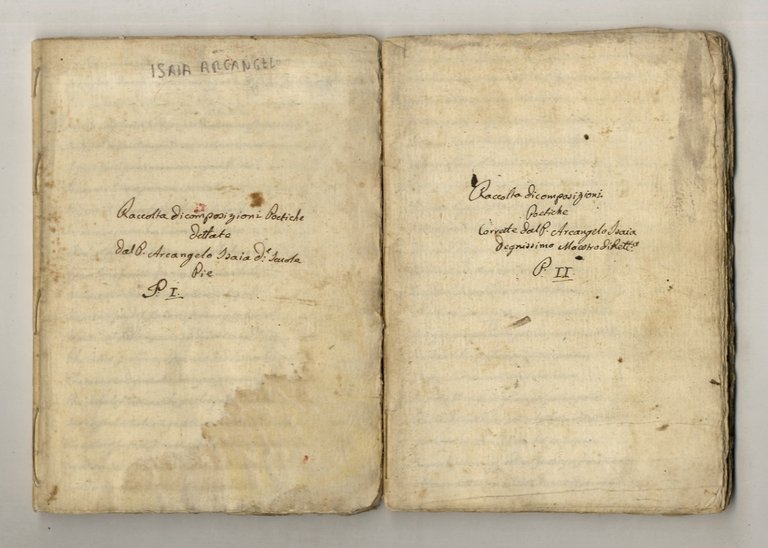 ISAIA ARCANGELO
Raccolta di composizioni Poetiche
dettate
dal P. Arcangelo Isaia d.e Scuole
Pie
P. I.
Raccolta di composizioni
Poetiche
Corrette dal P. Arcangelo Isaia
Degnissimo Maestro di Rett.a
P. II